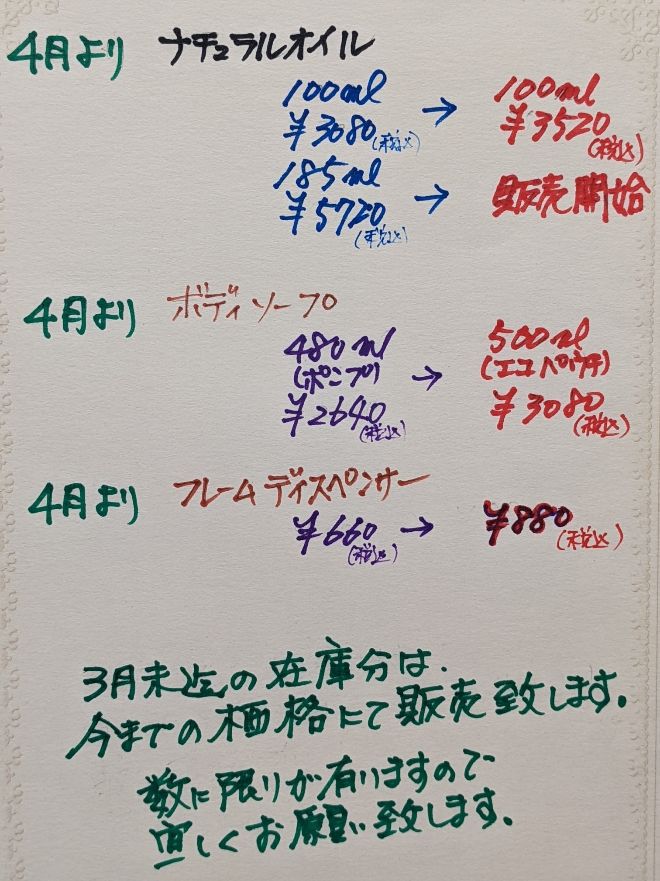 4月より ナチュラルオイル
100ml → 100ml
¥3080(税込) ¥3520(税込)
185ml
¥5720(税込) → 販売開始
4月より ボディソープ
480ml(ポンプ) → 500ml(エコパウチ)
¥2640(税込) ¥3080(税込)
4月より フレームディスペンサー
¥660(税込) → ¥880(税込)
3月末迄の在庫分は.
今までの価格にて販売致します。
数に限りが有りますので
宜しくお願い致します.